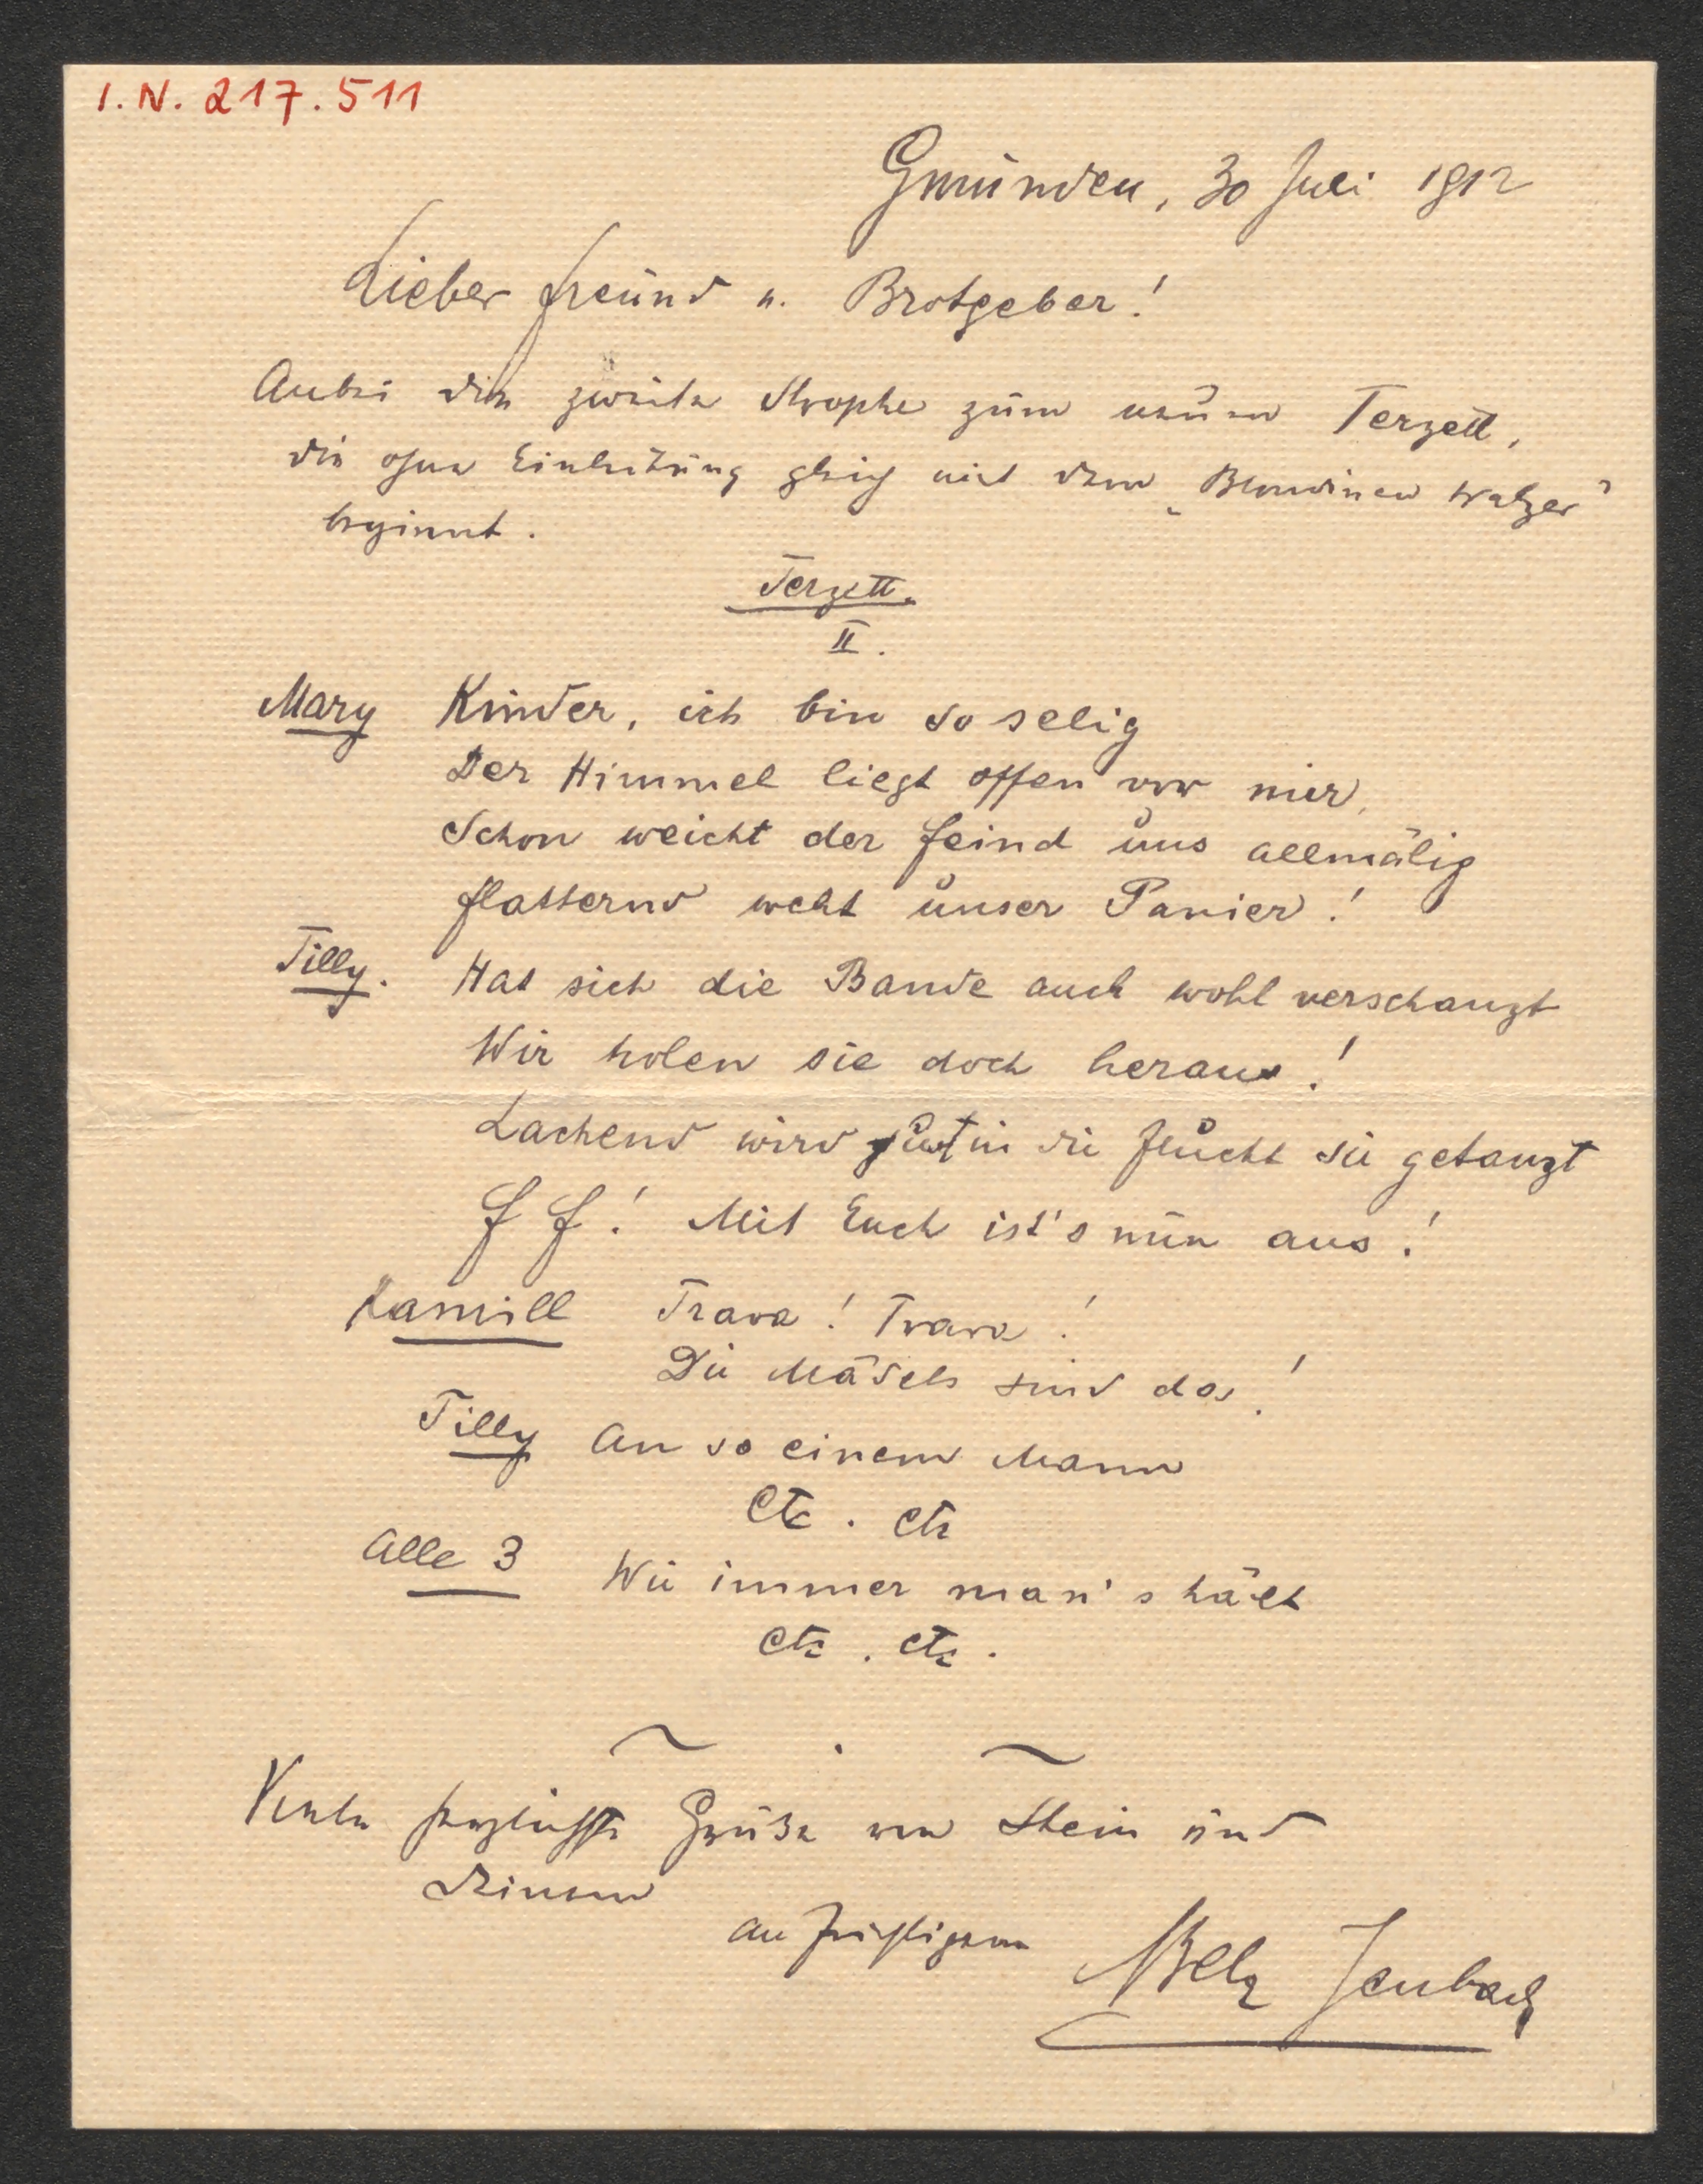 I. N. 217.511
Gmünden, 30 Juli 1912
Lieber Freund u. Brotgeber!
Anbei die zweite Strophe zum neuen Terzett,
die ohne Einleitung gleich mit dem „Blondinen Walzer"
beginnt.
Terzett.
II.
Mary Kinder, ich bin so selig
Der Himmel liegt offen vor mir,
Schon weicht der Feind uns allmälig
Flatternd weht unser Panier!
Tilly. Hat sich die Bande auch wohl verschanzt
Wir holen sie doch heraus!
Lachend wird in die Flucht sie getanzt
ff! Mit Euch ist's nun aus!
Kamill Trara! Trara!
Die Mädels sind da!
Tilly An so einem Mann
Etc. etc
Alle 3 Wie immer man's hält
etc. etc.
Viele herzlichste Grüße von Stein und
Deinem
aufrichtigem Bela Jenbach